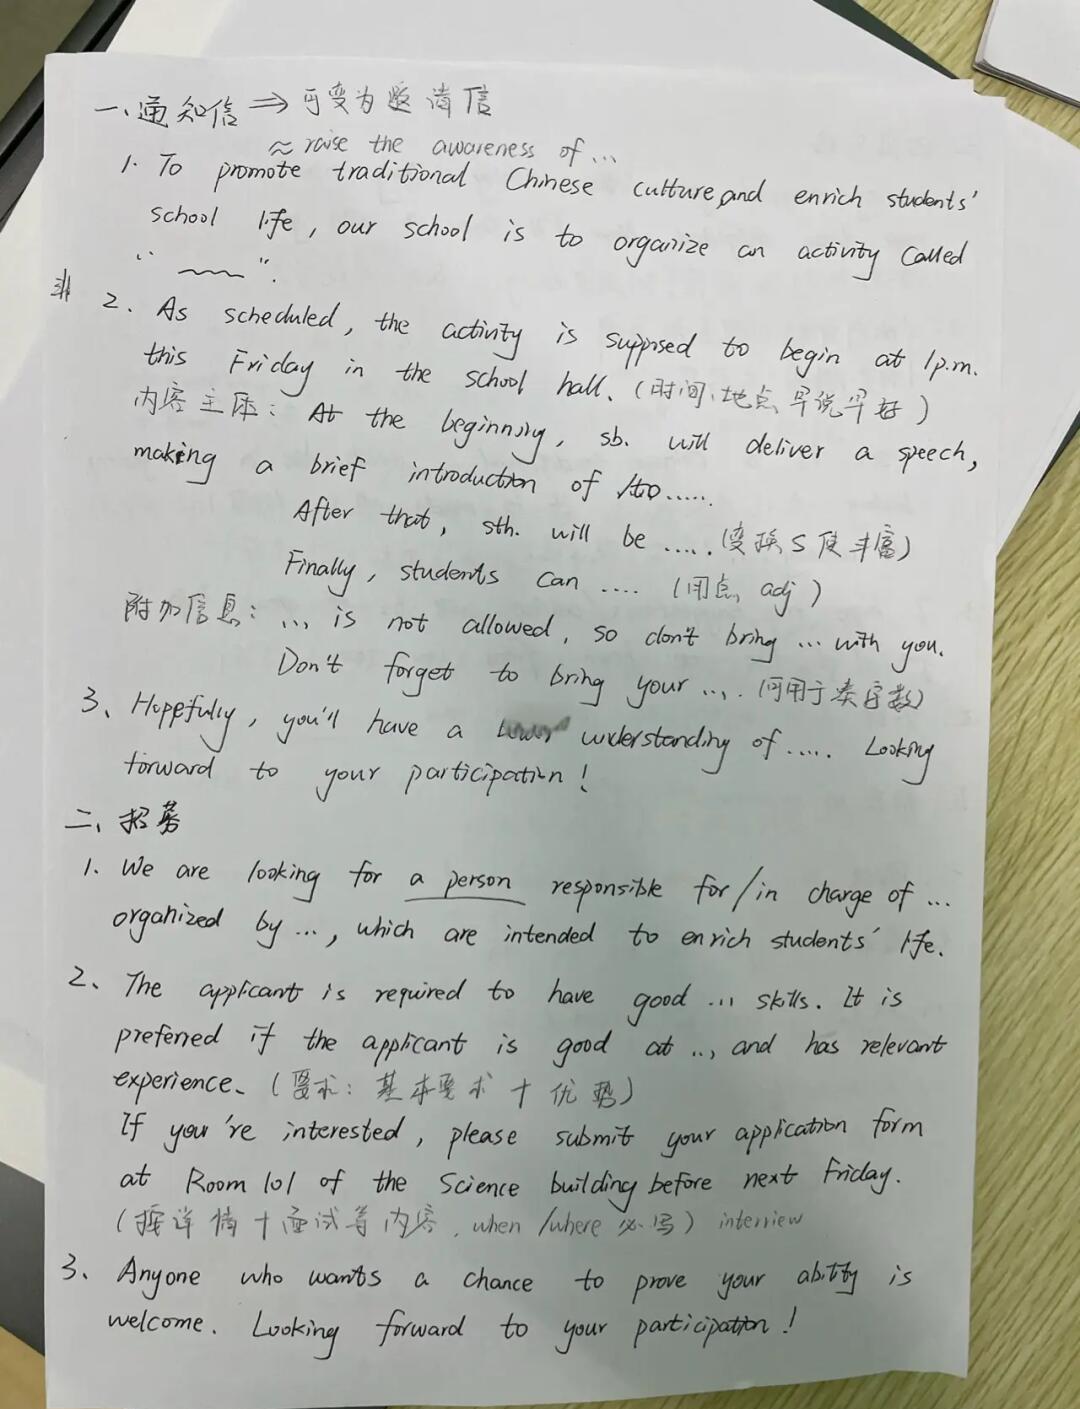 一、通知信 ⇒ 可变为邀请信
≈ raise the awareness of ...
1. To promote traditional Chinese culture, and enrich students'
school life, our school is to organize an activity called
" ~~~ ".
2. As scheduled, the activity is supposed to begin at 1p.m.
this Friday in the school hall. (时间、地点早说早好)
内容主体: At the beginning, sb. will deliver a speech,
making a brief introduction of /to......
After that, sth. will be ..... (变换S使丰富)
Finally, students can .... (闭点 adj)
附加信息: ... is not allowed, so don't bring ... with you.
Don't forget to bring your .... (可用于凑字数)
3、Hopefully, you'll have a understanding of ..... Looking
forward to your participation!
二、招募
1. We are looking for a person responsible for/in charge of ...
organized by ..., which are intended to enrich students' life.
2、The applicant is required to have good ... skills. It is
preferred if the applicant is good at ..., and has relevant
experience. (要求: 基本要求+优势)
If you're interested, please submit your application form
at Room 101 of the Science building before next Friday.
(接详情+面试等内容, when/where 必写) interview
3、Anyone who wants a chance to prove your ability is
welcome. Looking forward to your participation!